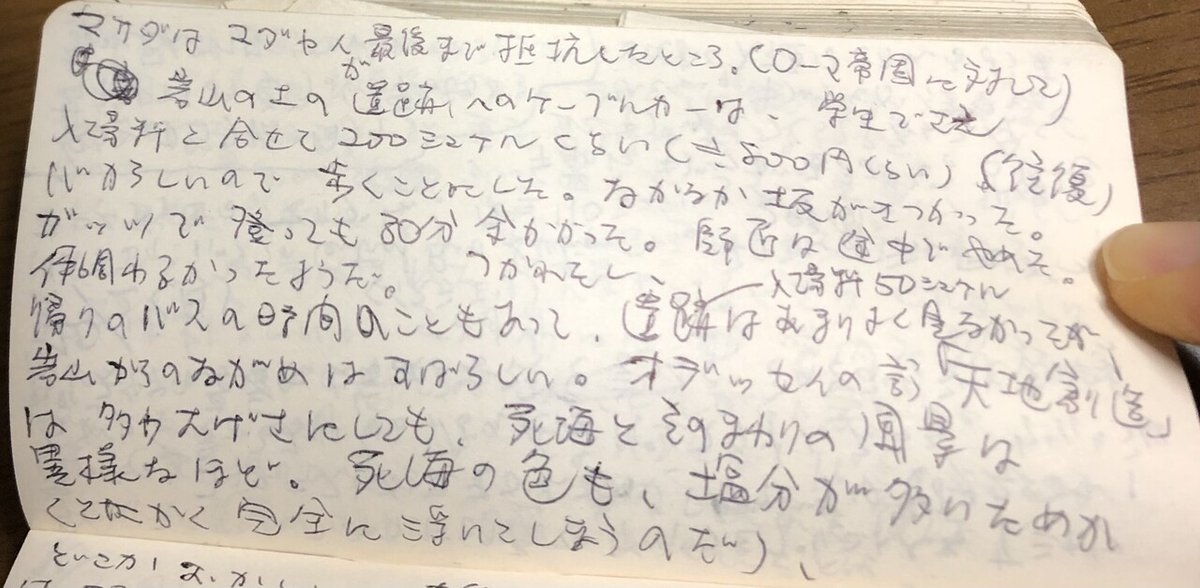 マサダは マダヤ人が最後まで抵抗したところ。(ローマ帝国に対して)
岩山の上の遺跡へのケーブルカーは、学生でさえ
入場料と合せて200シェケルくらい(≒ 円くらい)(往復)
バからしいので 歩くことにした。なかなか坂がきつかった。
ガッツで登っても 分 かかった。 は途中でやめた。
体調わるかったようだ。 つかれたし、
入場料50シェケル
帰りのバスの時間のこともあって、遺跡はあまりよく見なかったが
岩山からのながめはすばらしい。オデッセイの言う「天地創造」
は多少大げさにしても、死海とそのまわりの風景は
異様なほど。死海の色も、塩分が多いためか
く完全に浮いてしまうのだ)、
どこか